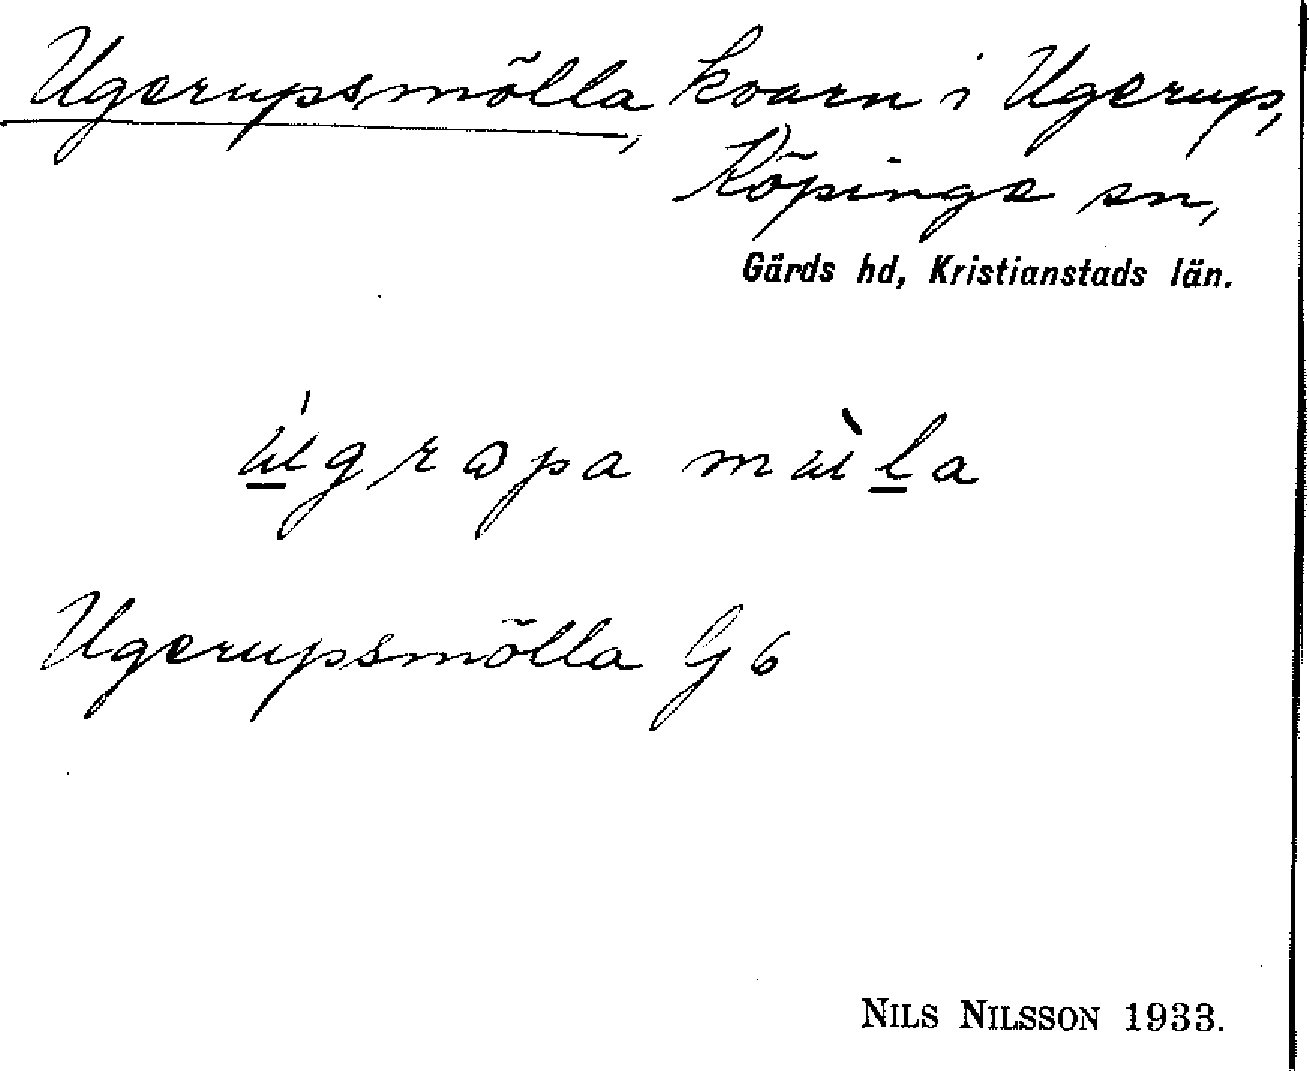 Ugerupsmölla, kvarn i Ugerup,
Köpinge sn,
Gärds hd, Kristianstads län.
Ugerupsmölla G 6
NILS NILSSON 1933.